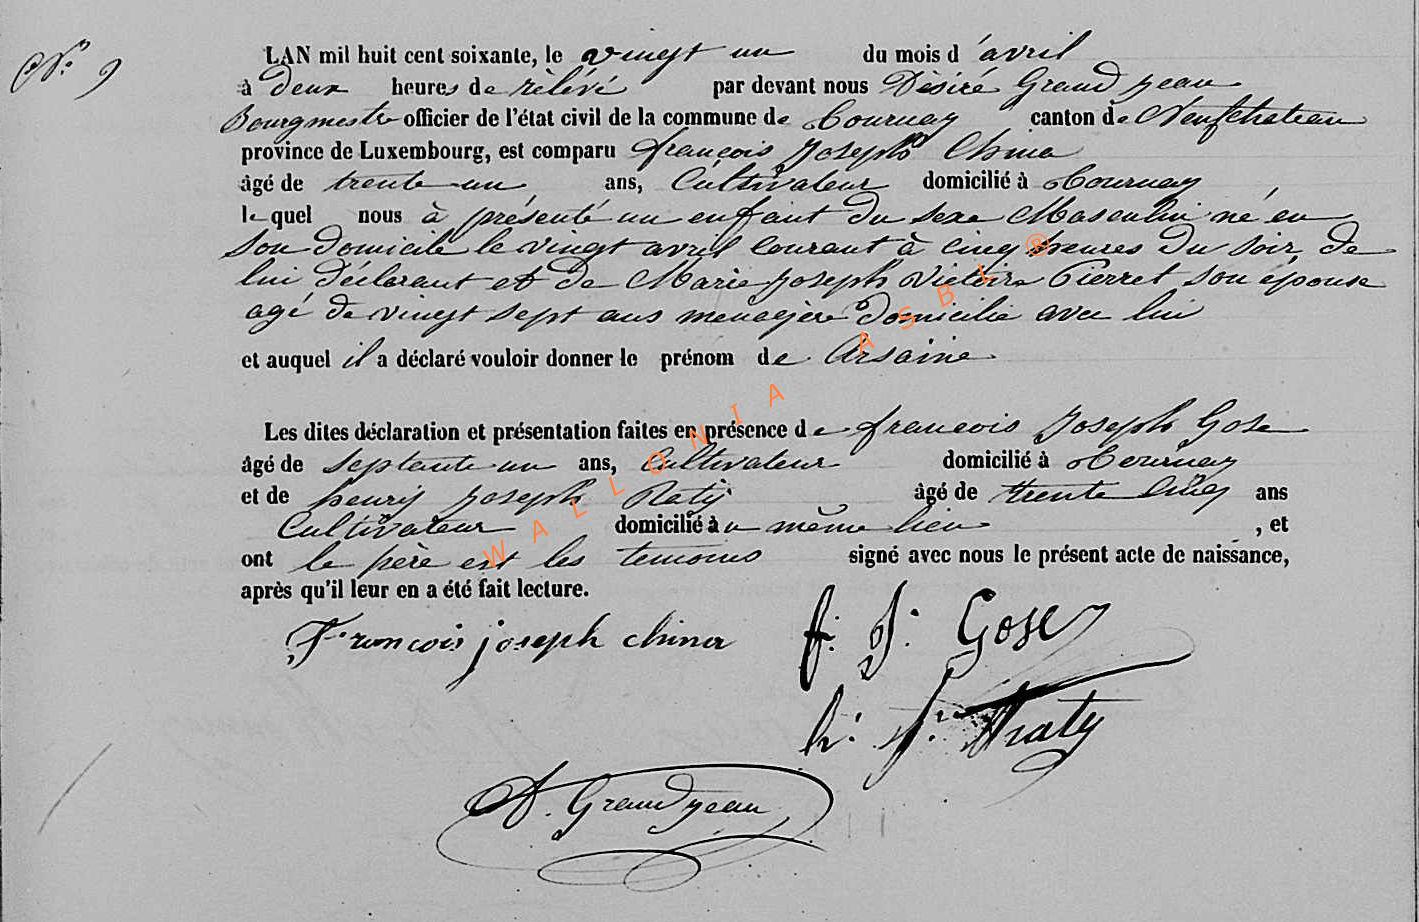 N° 9
LAN mil huit cent soixante, le vingt un du mois d'avril
à deux heures de rélévé par devant nous Désiré Grandjean
Bourgmestre officier de l'état civil de la commune de Tournay canton de Neufchateau
province de Luxembourg, est comparu françois Joseph
âgé de trente un ans, Cultivateur domicilié à Tournay
lequel nous à présenté un enfant du sexe Masculin né en
son domicile le vingt avril Courant à cinq heures du soir, de
lui déclarant et de Marie Joseph Victoire Pierret son épouse
agé de vingt sept ans menagère domicilié avec lui
et auquel il a déclaré vouloir donner le prénom de Arsaine
Les dites déclaration et présentation faites en présence de francois Joseph Gose
âgé de septante un ans, Cultivateur domicilié à Tournay
et de henry Joseph Raty âgé de trente Cinq ans
Cultivateur domicilié à même lieu , et
ont le père est les temoins signé avec nous le présent acte de naissance,
après qu'il leur en a été fait lecture.
François joseph
f. J. Gose
h. J. Raty
D. Grandjean
WALLONIA ASBL ®